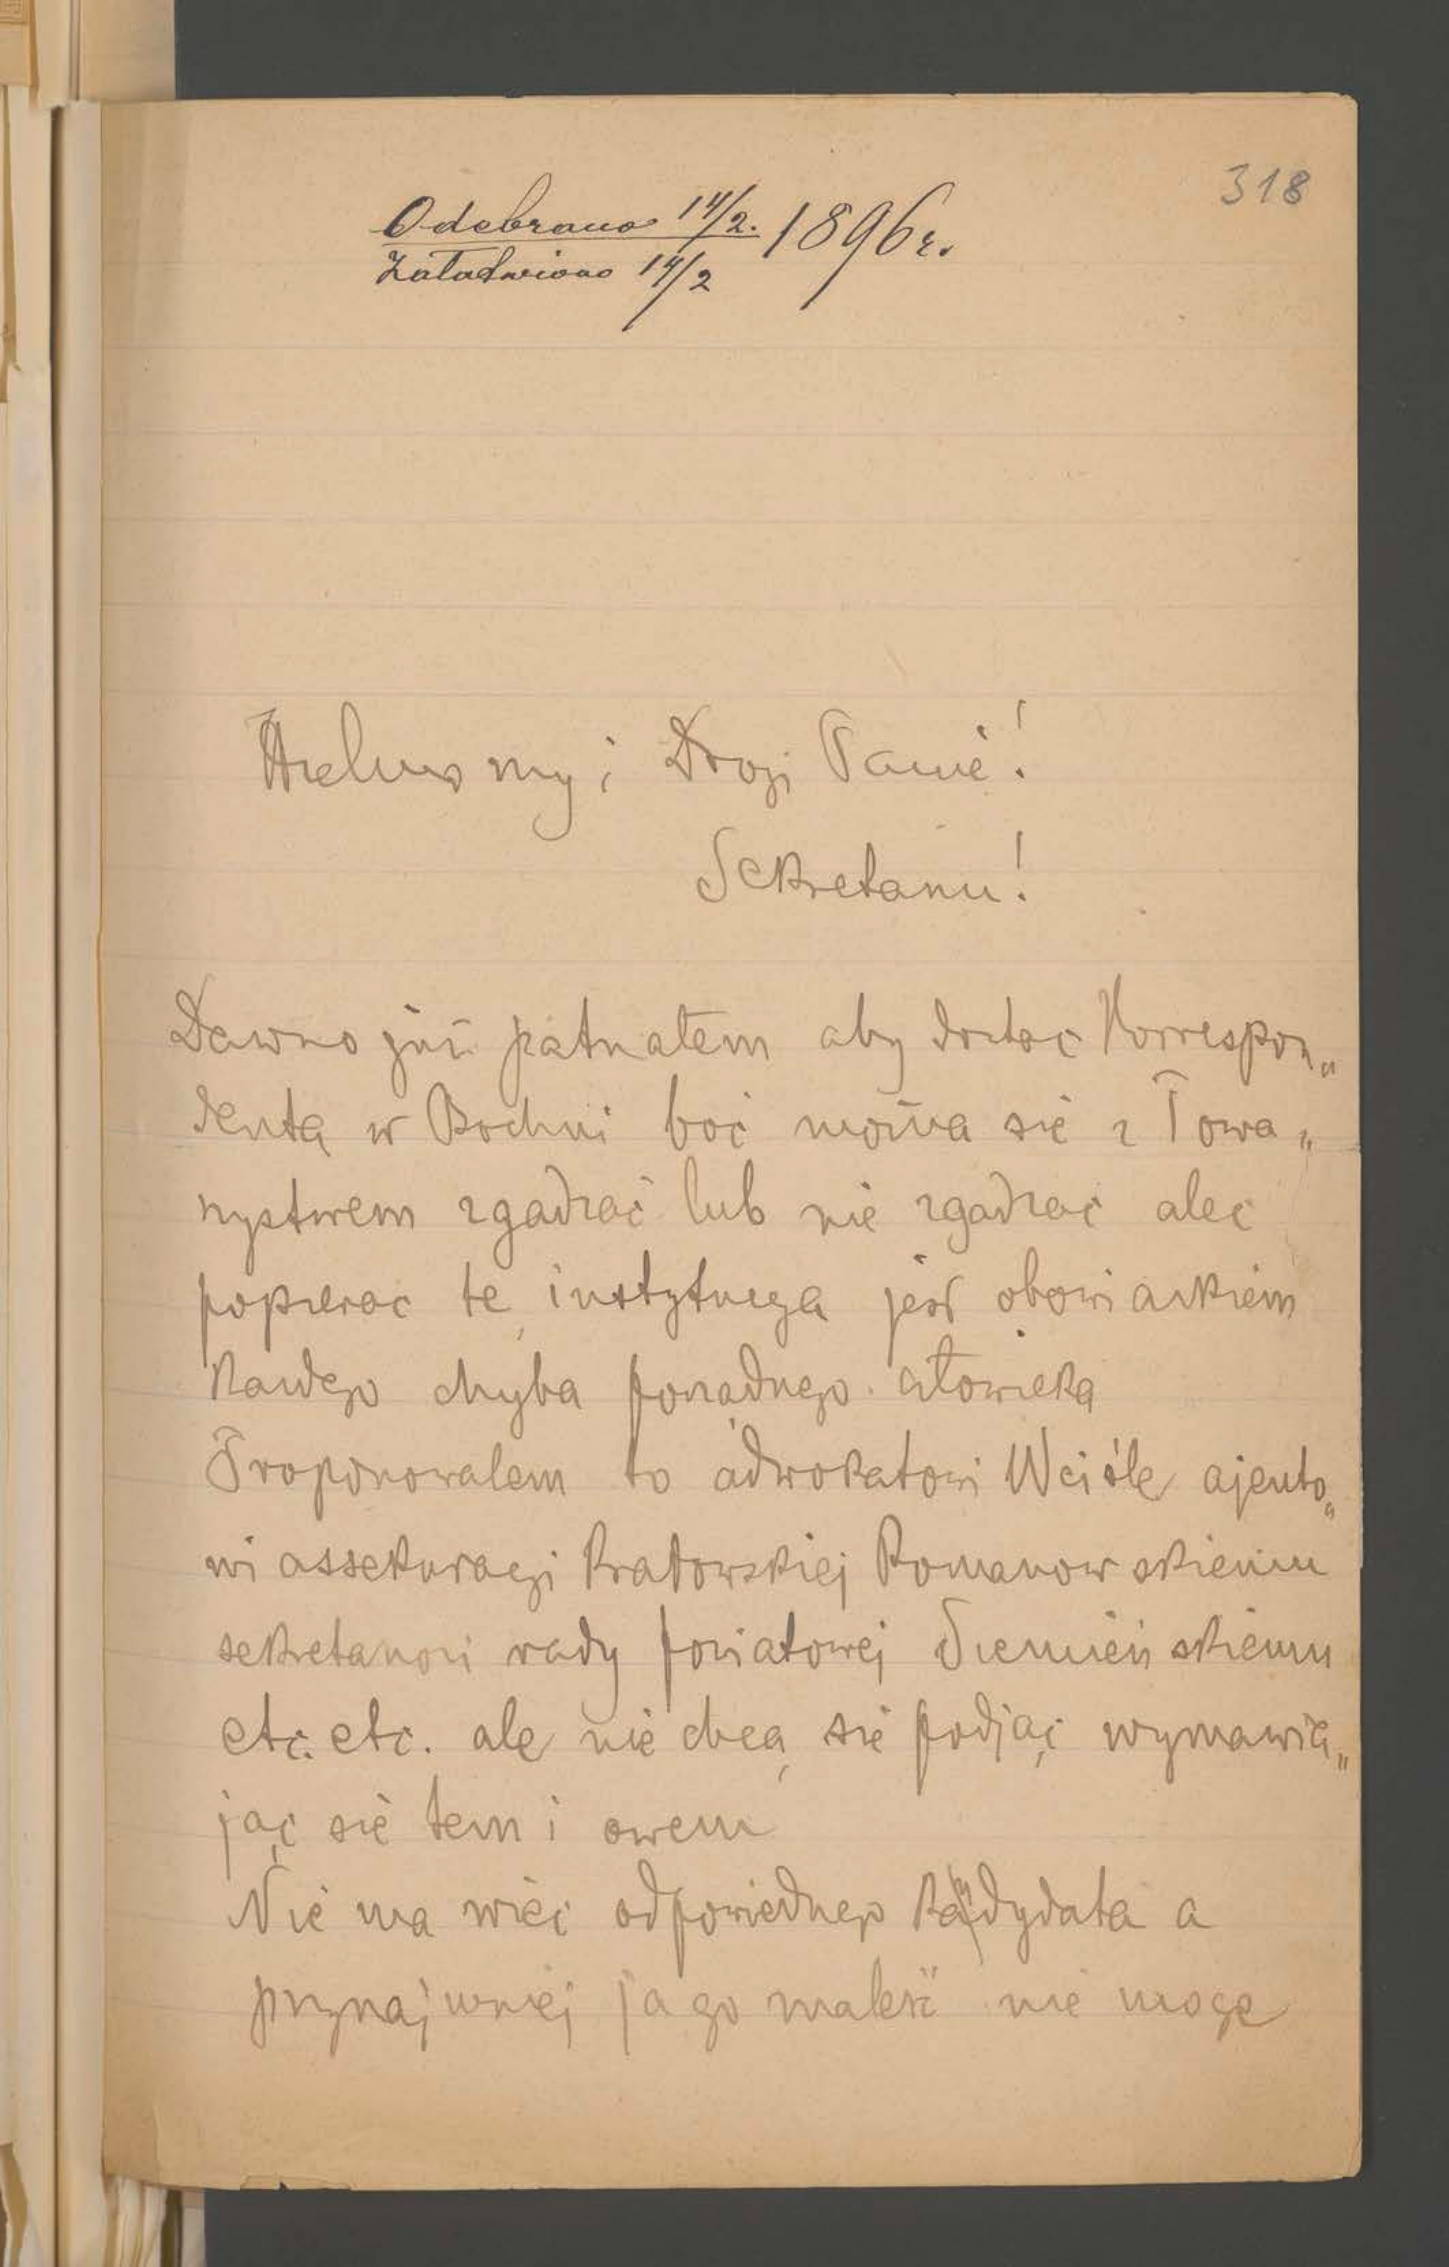 318
Odebrano 14/2. 1896 r.
Załatwiono 14/2
i Drogi Panie!
Sekretarzu!
Dawno już patrzałem aby dostać Korrespon„
denta w Bochni boć można się z Towa„
rzystwem zgadzać lub nie zgadzać aleć
popierać tę instytucyą jest obowiązkiem
każdego chyba porządnego człowieka
Proponowałem to adwokatowi Wciśle ajento„
wi assekuracyi krakowskiej Romanowskiemu
sekretarzowi rady powiatowej Siemieńskiemu
etc. etc. ale nie chcą się podjąć wymawia„
jąc się tem i owem
Nie ma więc odpowiednego kandydata a
przynajmniej ja go znaleść nie mogę